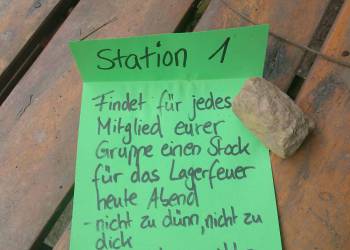 Station 1
Findet für jedes
Mitglied eurer
Gruppe einen Stock
für das Lagerfeuer
heute Abend
- nicht zu dünn, nicht zu
dick